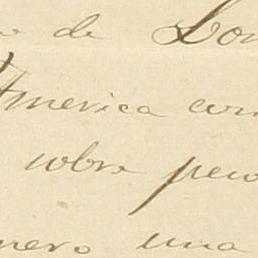 de Lon
America com
sobre pew
nero una